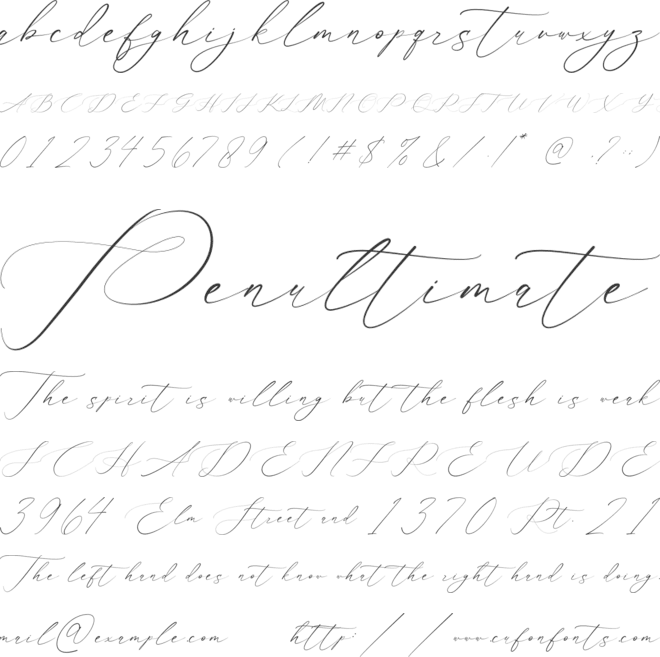 abcdefghijklmnopqrstuvwxyz
ABCDEFGHIJKLMNOPQRSTUVWXY
0123456789(!#$%&/.|*@.?:;)
Penultimate
The spirit is willing but the flesh is weak
SCHADENFREUDE
3964 Elm Street and 1370 Rt. 21
The left hand does not know what the right hand is doing.
mail@example.com http://www.cufonfonts.com